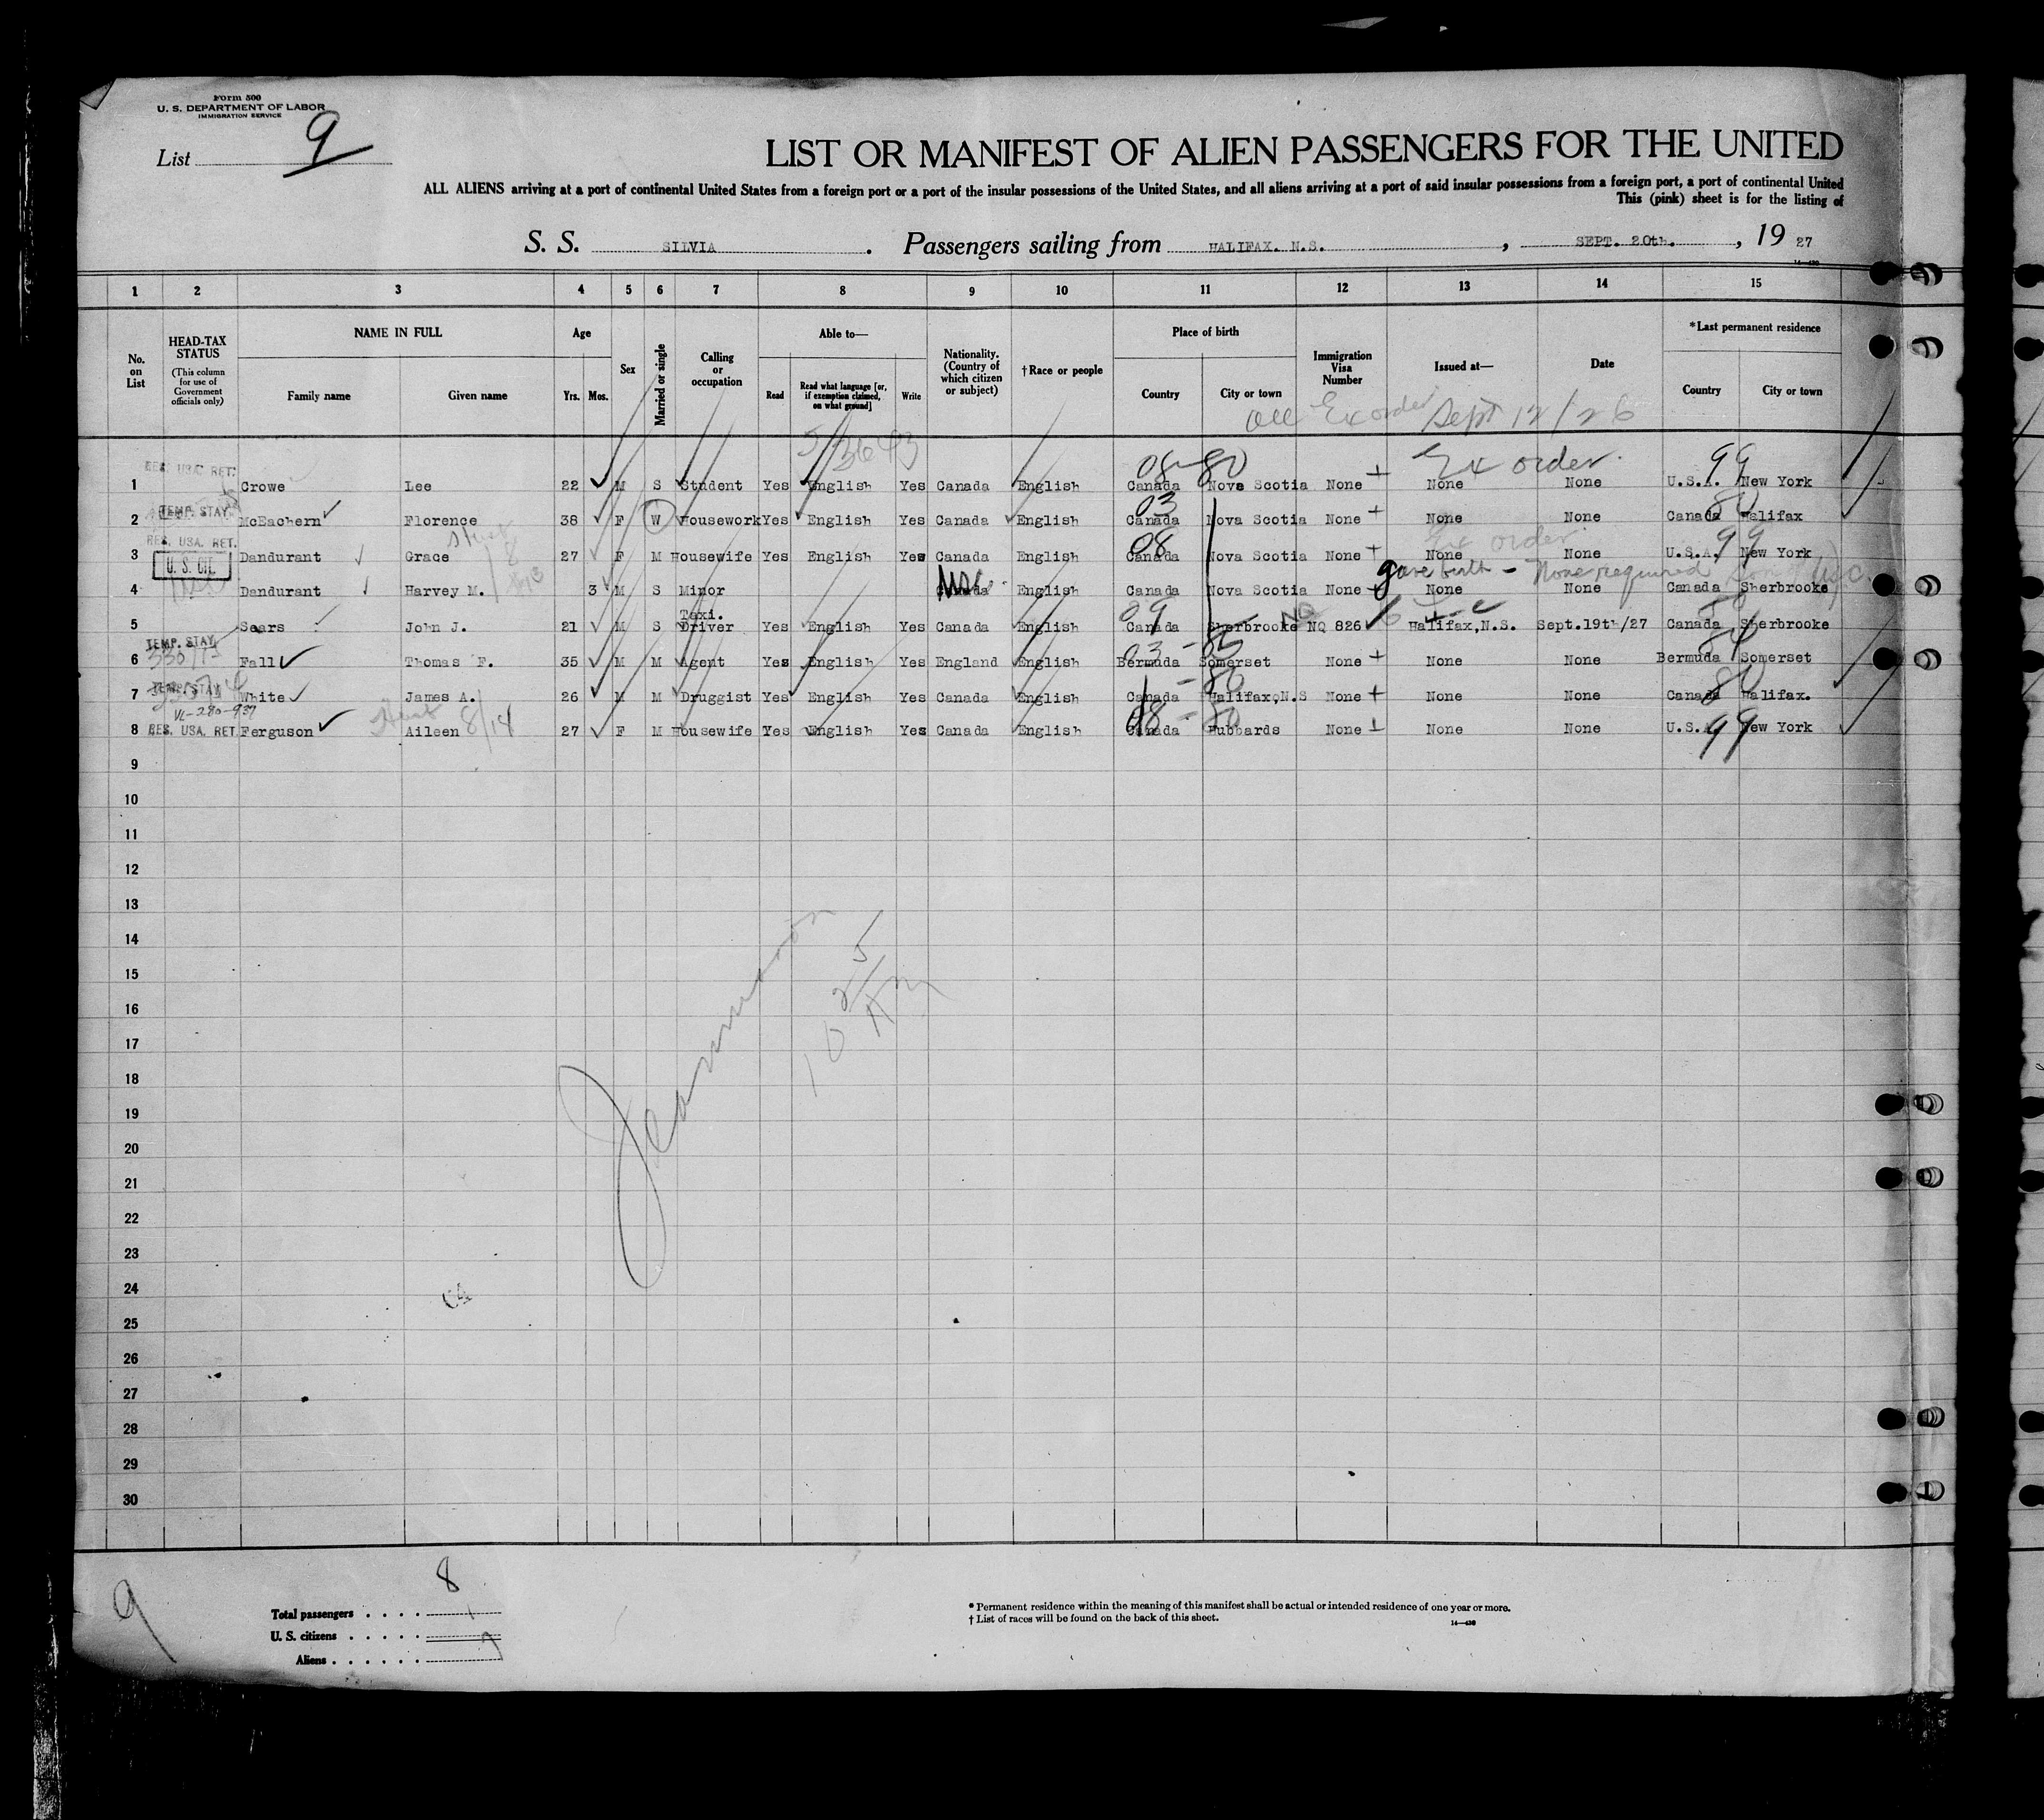 Form 500
U. S. DEPARTMENT OF LABOR
IMMIGRATION SERVICE
List 9
LIST OR MANIFEST OF ALIEN PASSENGERS FOR THE UNITED
ALL ALIENS arriving at a port of continental United States from a foreign port or a port of the insular possessions of the United States, and all aliens arriving at a port of said insular possessions from a foreign port, a port of continental United
This (pink) sheet is for the listing of
S. S. SILVIA. Passengers sailing from HALIFAX. N.S., SEPT. 20th., 19 27
14—430
1 2 3 4 5 6 7 8 9 10 11 12 13 14 15
No. on List
HEAD-TAX STATUS
(This column for use of Government officials only)
NAME IN FULL
Family name Given name
Age
Yrs. Mos.
Sex
Married or single
Calling or occupation
Able to—
Read
Read what language [or, if exemption claimed, on what ground]
Write
Nationality. (Country of which citizen or subject)
†Race or people
Place of birth
Country City or town
Immigration Visa Number
Issued at—
Date
*Last permanent residence
Country City or town
All Ex order Sept 12/26
08-80 Ex order. 99
RES. USA. RET.
1 Crowe Lee 22 M S Student Yes English Yes Canada English Canada Nova Scotia None None None U.S.A. New York
03 80
2 TEMP. STAY McEachern Florence 38 F W Housework Yes English Yes Canada English Canada Nova Scotia None None None Canada Halifax
08 Ex order 99
RES. USA. RET.
3 Dandurant Grace 27 F M Housewife Yes English Yes Canada English Canada Nova Scotia None None None U.S.A. New York
U. S. CIT.
USC gave birth - None required
4 Dandurant Harvey M. 3 M S Minor Canada English Canada Nova Scotia None None None Canada Sherbrooke
09
5 Sears John J. 21 M S Taxi. Driver Yes English Yes Canada English Canada Sherbrooke NQ 826 Halifax,N.S. Sept.19th/27 Canada Sherbrooke
TEMP. STAY
03-85 84
6 Fall Thomas F. 35 M M Agent Yes English Yes England English Bermuda Somerset None None None Bermuda Somerset
-80 80
7 TEMP. STAY White James A. 26 M M Druggist Yes English Yes Canada English Canada Halifax,N.S None None None Canada Halifax.
08-80 99
8 RES. USA. RET. Ferguson Aileen 8/14 27 F M Housewife Yes English Yes Canada English Canada Hubbards None None None U.S.A. New York
9
10
11
12
13
14
15
16
17
18
19
20
21
22
23
24
25
26
27
28
29
30
9
8
Total passengers . . . .
U. S. citizens . . . . . 1
Aliens . . . . . . 7
* Permanent residence within the meaning of this manifest shall be actual or intended residence of one year or more.
† List of races will be found on the back of this sheet.
14—430